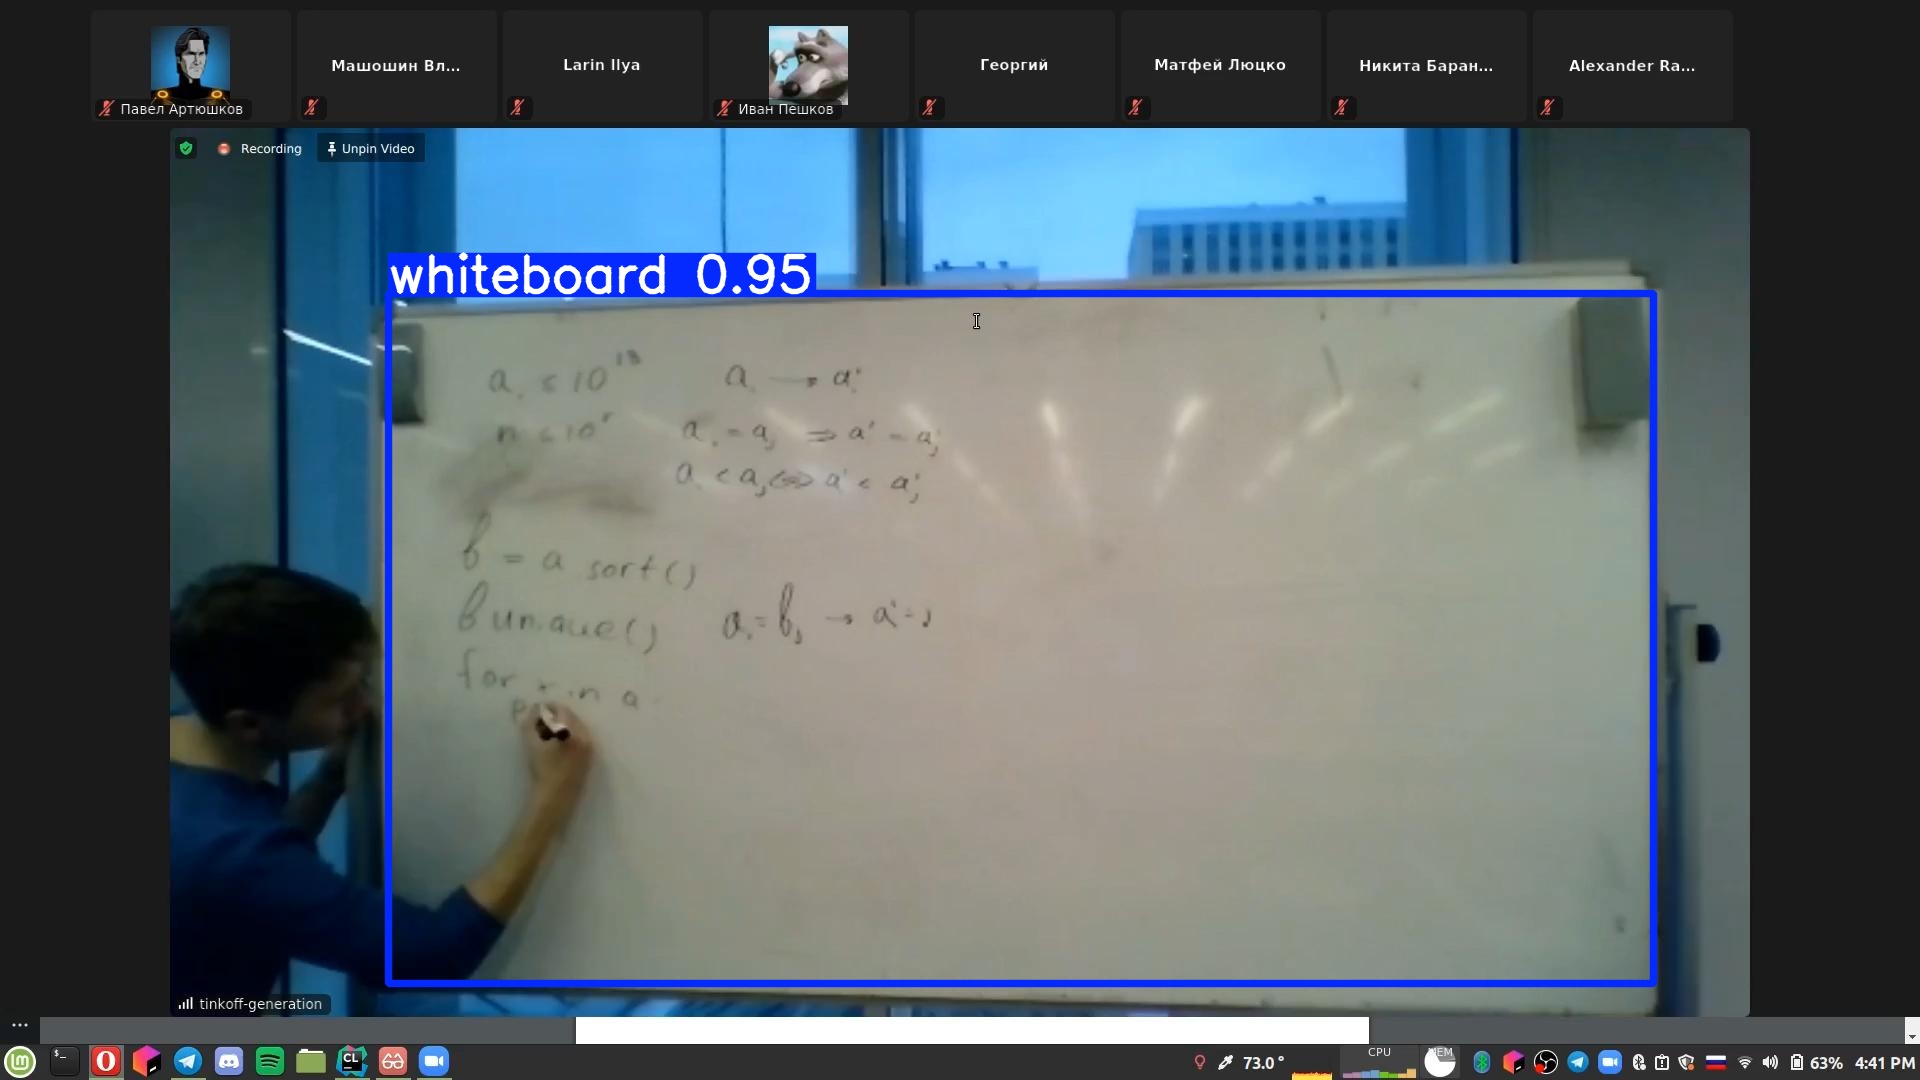 Павел Артюшков
Машошин Вл...
Larin Ilya
Иван Пешков
Георгий
Матфей Люцко
Никита Баран...
Alexander Ra...
Recording
Unpin Video
whiteboard 0.95
a_i ≤ 10^18 a_i → a'_i
n ≤ 10^5 a_i = a_j ⇒ a'_i = a'_j
a_i < a_j ⇔ a'_i < a'_j
b = a sort()
b unique() a_i = b_j → a'_i = j
for x in a
tinkoff-generation
CL
73.0°
CPU
MEM
63%
4:41 PM